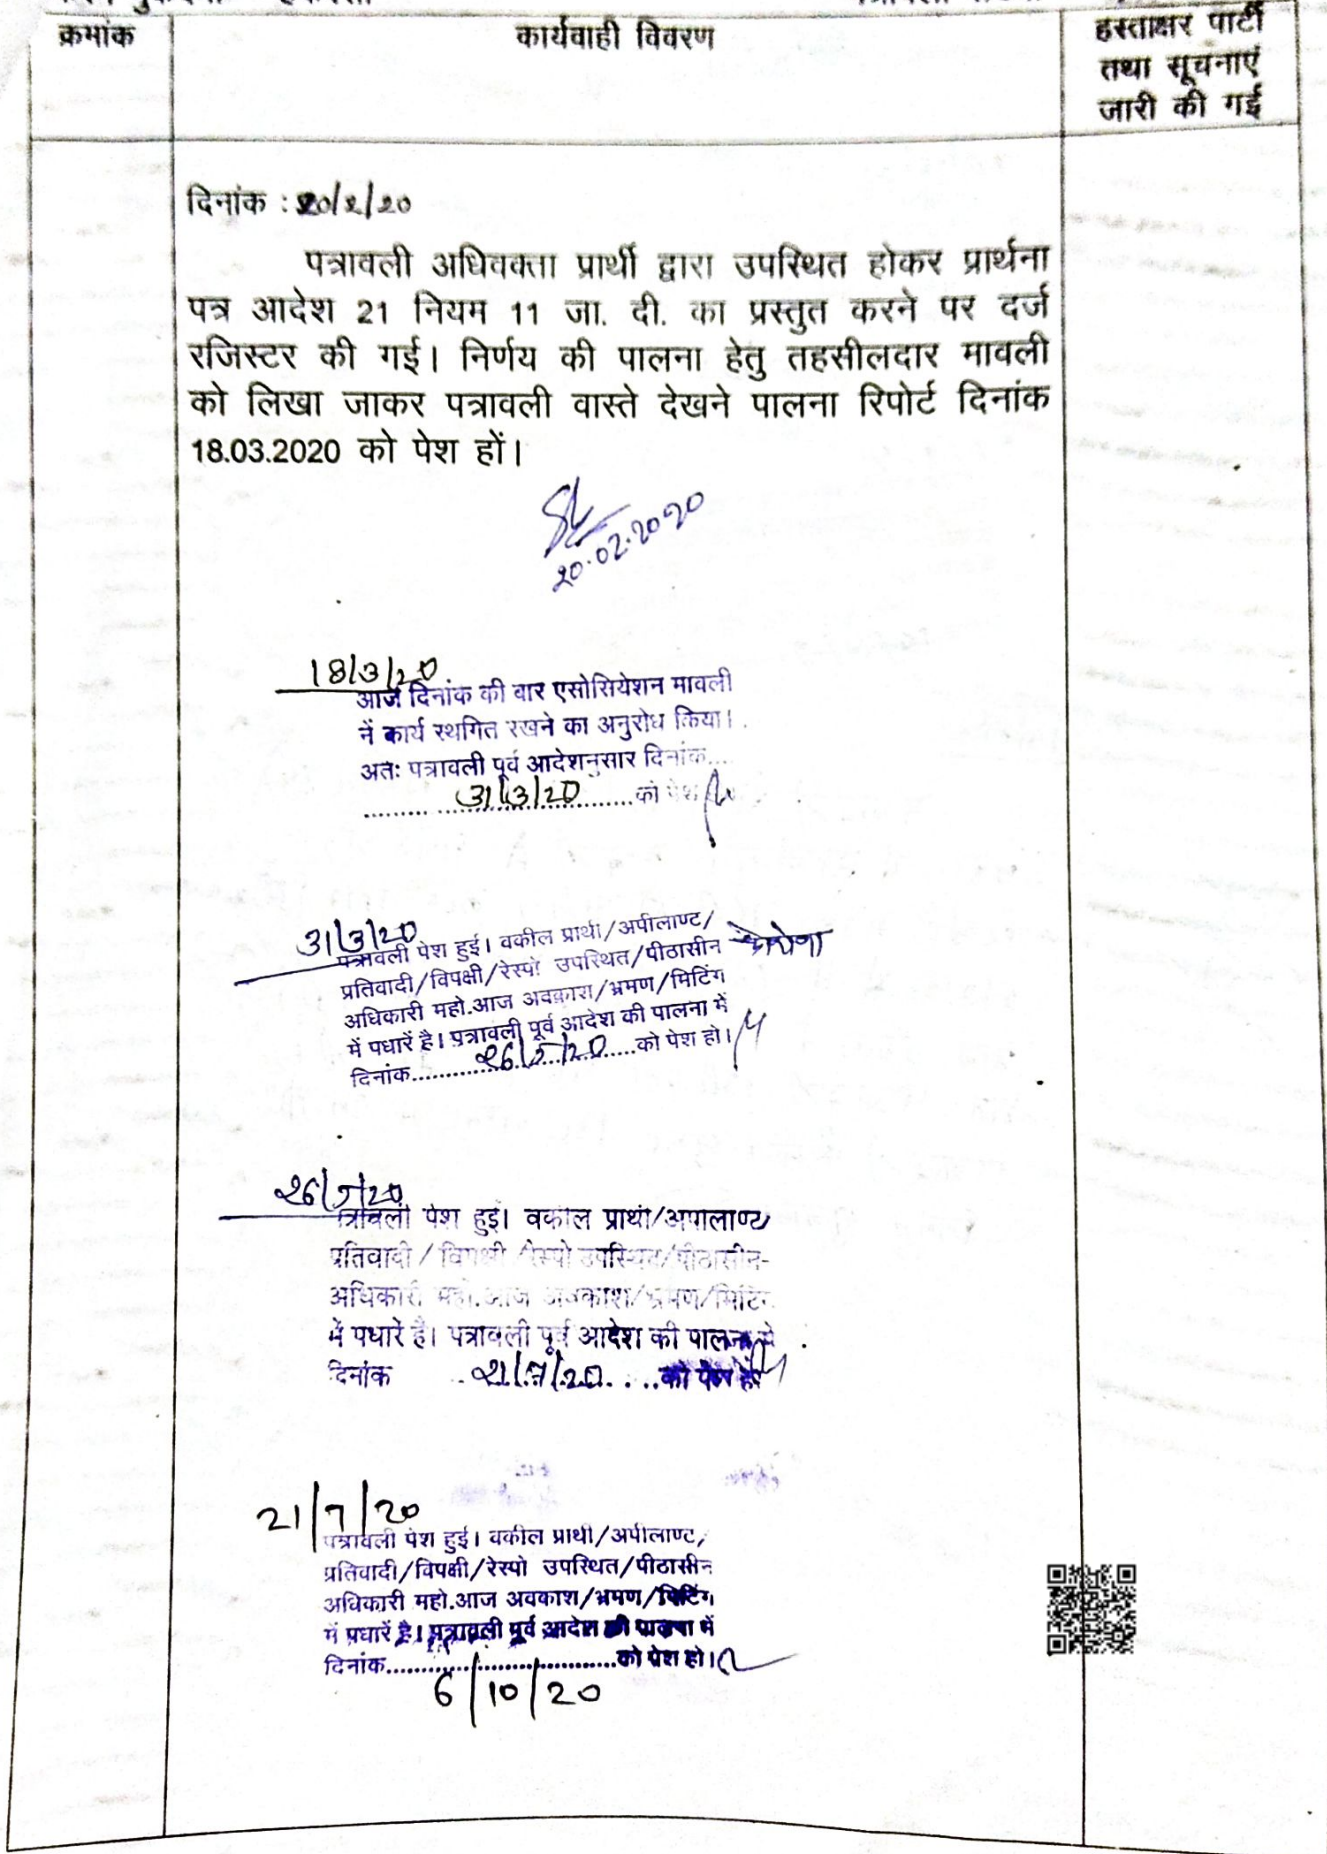 क्रमांक
कार्यवाही विवरण
हस्ताक्षर पार्टी
तथा सूचनाएं
जारी की गई
दिनांक : 20/2/20
पत्रावली अधिवक्ता प्रार्थी द्वारा उपस्थित होकर प्रार्थना
पत्र आदेश 21 नियम 11 जा. दी. का प्रस्तुत करने पर दर्ज
रजिस्टर की गई। निर्णय की पालना हेतु तहसीलदार मावली
को लिखा जाकर पत्रावली वास्ते देखने पालना रिपोर्ट दिनांक
18.03.2020 को पेश हों।
20.02.2020
18/3/20
आज दिनांक की बार एसोसियेशन मावली
नें कार्य स्थगित रखने का अनुरोध किया।
अतः पत्रावली पूर्व आदेशनुसार दिनांक....
......... 31/3/20 ......को पेश
31/3/20
पत्रावली पेश हुई। वकील प्रार्थी/अपीलाण्ट/
प्रतिवादी/विपक्षी/रेस्पो उपस्थित/पीठासीन
अधिकारी महो.आज अवकाश/भ्रमण/मिटिंग
में पधारें है। पत्रावली पूर्व आदेश की पालना में
दिनांक.......26/5/20......को पेश हो।
26/5/20
त्रावली पेश हुई। वकील प्रार्थी/अपीलाण्ट/
प्रतिवादी / विपक्षी /रेस्पो उपस्थित/पीठासीन
अधिकारी महो.आज अवकाश/भ्रमण/मिटिंग
में पधारें है। पत्रावली पूर्व आदेश की पालना में
दिनांक ..21/7/20....को पेश हो
21/7/20
पत्रावली पेश हुई। वकील प्रार्थी/अपीलाण्ट/
प्रतिवादी/विपक्षी/रेस्पो उपस्थित/पीठासीन
अधिकारी महो.आज अवकाश/भ्रमण/मिटिंग
में पधारें है। पत्रावली पूर्व आदेश की पालना में
दिनांक..................................को पेश हो।
6/10/20